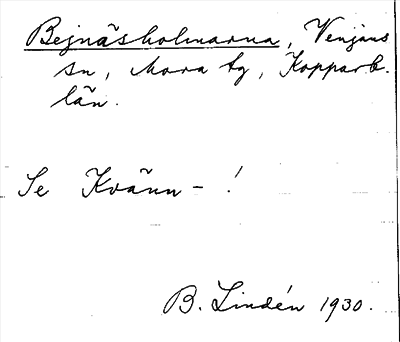 Bejnäsholmarna, Venjans
sn, Mora tg, Kopparb.
län.
Se Kvänn- !
B. Lindén 1930.